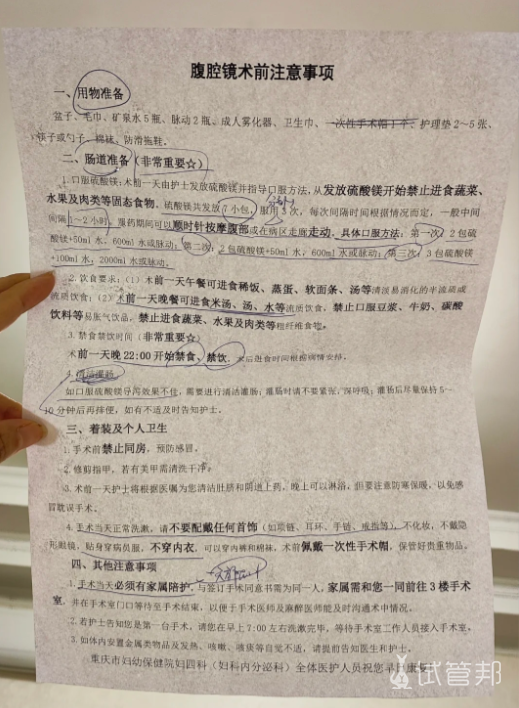 腹腔镜术前注意事项
一、用物准备
盆子、毛巾、矿泉水5瓶、脉动2瓶、成人雾化器、卫生巾、一次性手术帽1个、护理垫2~5张、
筷子或勺子、棉袜、防滑拖鞋。
二、肠道准备(非常重要☆)
1.口服硫酸镁:术前一天由护士发放硫酸镁并指导口服方法,从发放硫酸镁开始禁止进食蔬菜、
水果及肉类等固态食物,硫酸镁共发放7小包,服用3次,每次间隔时间根据情况而定,一般中间
间隔1~2小时,服药期间可以顺时针按摩腹部或在病区走廊走动。具体口服方法:第一次:2包硫
酸镁+50ml水,600ml水或脉动;第二次:2包硫酸镁+50ml水,600ml水或脉动;第三次:3包硫酸镁
+100ml水,2000ml水或脉动。
2.饮食要求:(1)术前一天午餐可进食稀饭、蒸蛋、软面条、汤等清淡易消化的半流质或
流质饮食;(2)术前一天晚餐可进食米汤、汤、水等流质饮食,禁止口服豆浆、牛奶、碳酸
饮料等易胀气饮品,禁止进食蔬菜、水果及肉类等粗纤维食物。
3.禁食禁饮时间(非常重要☆)
术前一天晚22:00开始禁食、禁饮,术后进食时间根据病情安排。
4.清洁灌肠
如口服硫酸镁导泻效果不佳,需要进行清洁灌肠;灌肠时请不要紧张,深呼吸;灌肠后尽量保持5~
10分钟后再排便,如有不适及时告知护士。
三、着装及个人卫生
1.手术前禁止同房,预防感冒。
2.修剪指甲,若有美甲需清洗干净。
3.术前一天护士将根据医嘱为您清洁肚脐和阴道上药,晚上可以淋浴,但要注意防寒保暖,以免感
冒耽误手术。
4.手术当天正常洗漱,请不要配戴任何首饰(如项链、耳环、手链、戒指等),不化妆,不戴隐
形眼镜,贴身穿病员服,不穿内衣,可以穿内裤和棉袜,术前佩戴一次性手术帽,保管好贵重物品。
四、其他注意事项
1.手术当天必须有家属陪护,与签订手术同意书需为同一人,家属需和您一同前往3楼手术
室,并在手术室门口等待至手术结束,以便于手术医师及麻醉医师能及时沟通术中情况。
2.若护士告知您是第一台手术,请您在早上7:00左右洗漱完毕,等待手术室工作人员接入手术室。
3.如体内安置金属类物品及发热、咳嗽、咳痰等自觉不适,请提前告知医生和护士。
重庆市妇幼保健院妇四科(妇科内分泌科)全体医护人员祝您早日康复
试管邦